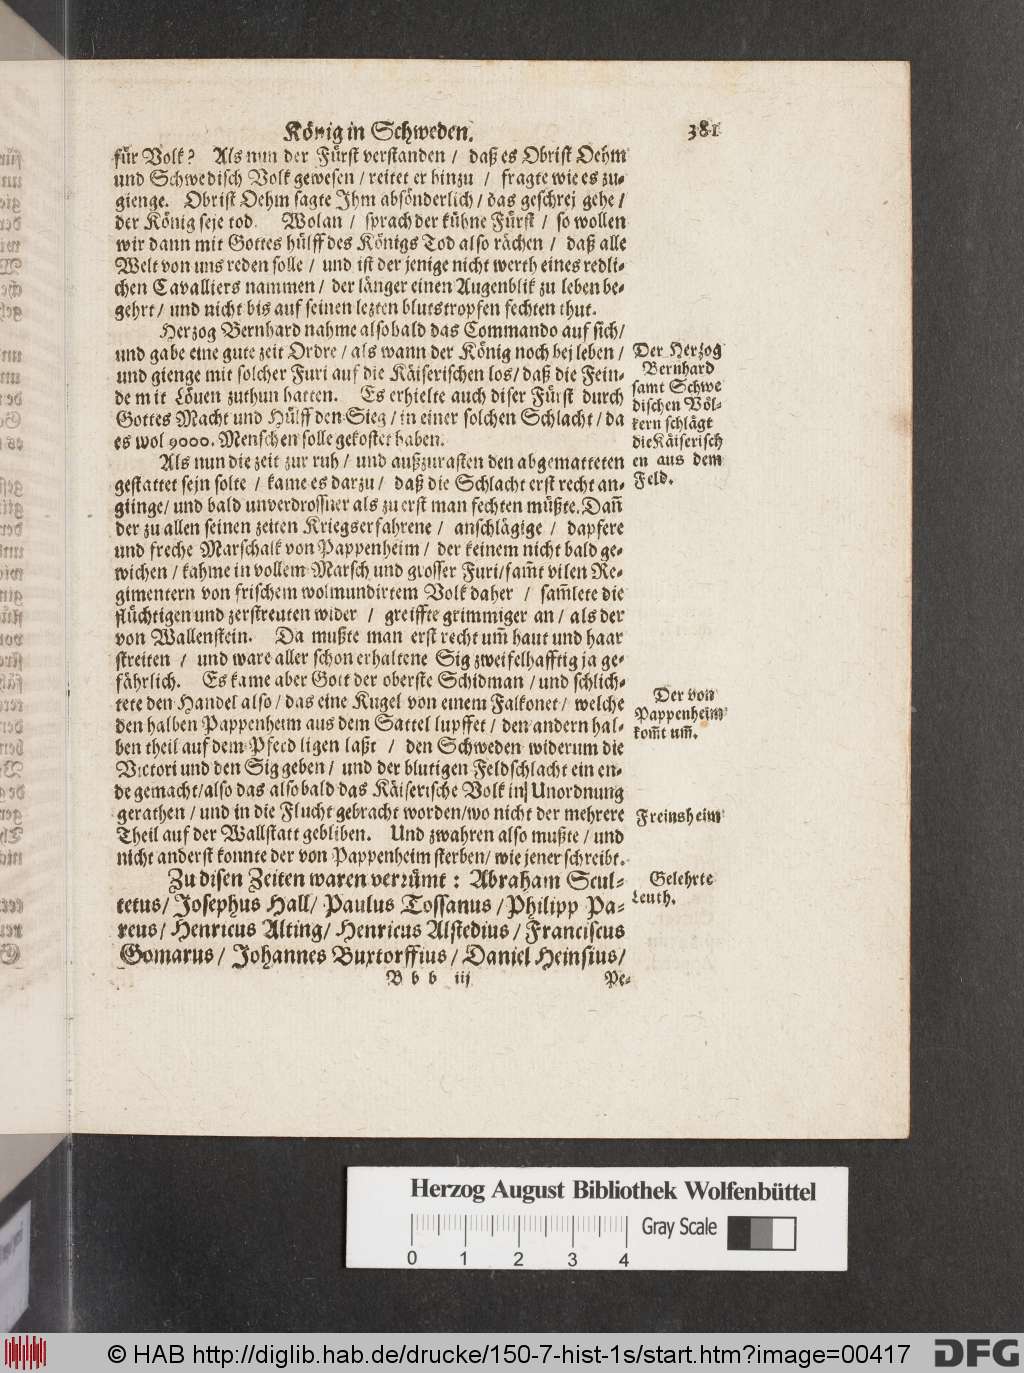 König in Schweden. 381
für Volk? Als nun der Fürst verstanden / daß es Obrist Oehm
und Schwedisch Volk gewesen / reitet er hinzu / fragte wie es zu-
gienge. Obrist Oehm sagte Jhm absönderlich / das geschrej gehe /
der König seje tod. Wolan / sprach der kühne Fürst / so wollen
wir dann mit Gottes hülff des Königs Tod also rächen / daß alle
Welt von uns reden solle / und ist der jenige nicht werth eines redli-
chen Cavalliers nammen / der länger einen Augenblik zu leben be-
gehrt / und nicht bis auf seinen lezten blutstropfen fechten thut.
Herzog Bernhard nahme alsobald das Commando auf sich /
und gabe eine gute zeit Ordre / als wann der König noch bej leben /
und gienge mit solcher Furi auf die Käiserischen los / daß die Fein-
de mit Löuen zuthun hatten. Es erhielte auch diser Fürst durch
Gottes Macht und Hülff den Sieg / in einer solchen Schlacht / da
es wol 9000. Menschen solle gekostet haben.
Der Herzog
Bernhard
samt Schwe
dischen Völ-
kern schlägt
die Käiserisch
en aus dem
Feld.
Als nun die zeit zur ruh / und außzurasten den abgematteten
gestattet sejn solte / kame es darzu / daß die Schlacht erst recht an-
giinge / und bald unverdrossner als zu erst man fechten müßte. Dañ
der zu allen seinen zeiten Kriegserfahrene / anschlägige / dapfere
und freche Marschalk von Pappenheim / der keinem nicht bald ge-
wichen / kahme in vollem Marsch und grosser Furi / sam̃t vilen Re-
gimentern von frischem wolmundirtem Volk daher / sam̃lete die
flüchtigen und zerstreuten wider / greiffte grimmiger an / als der
von Wallenstein. Da mußte man erst recht um̃ haut und haar
streiten / und ware aller schon erhaltene Sig zweifelhafftig ja ge-
fährlich. Es kame aber Gott der oberste Schidman / und schlich-
tete den Handel also / das eine Kugel von einem Falkonet / welche
den halben Pappenheim aus dem Sattel lupffet / den andern hal-
ben theil auf dem Pferd ligen laßt / den Schweden widerum die
Victori und den Sig geben / und der blutigen Feldschlacht ein en-
de gemacht / also das alsobald das Käiserische Volk in Unordnung
gerathen / und in die Flucht gebracht worden / wo nicht der mehrere
Theil auf der Wallstatt gebliben. Und zwahren also mußte / und
nicht anderst konnte der von Pappenheim sterben / wie jener schreibt.
Der von
Pappenheim
kom̃t um̃.
Freinsheim
Zu disen Zeiten waren verrümt : Abraham Scul-
tetus / Josephus Hall / Paulus Tossanus / Philipp Pa-
reus / Henricus Alting / Henricus Alstedius / Franciscus
Gomarus / Johannes Buxtorffius / Daniel Heinsius /
Gelehrte
Leuth.
B b b iij Pe-
Herzog August Bibliothek Wolfenbüttel
Gray Scale
0 1 2 3 4
© HAB http://diglib.hab.de/drucke/150-7-hist-1s/start.htm?image=00417
DFG